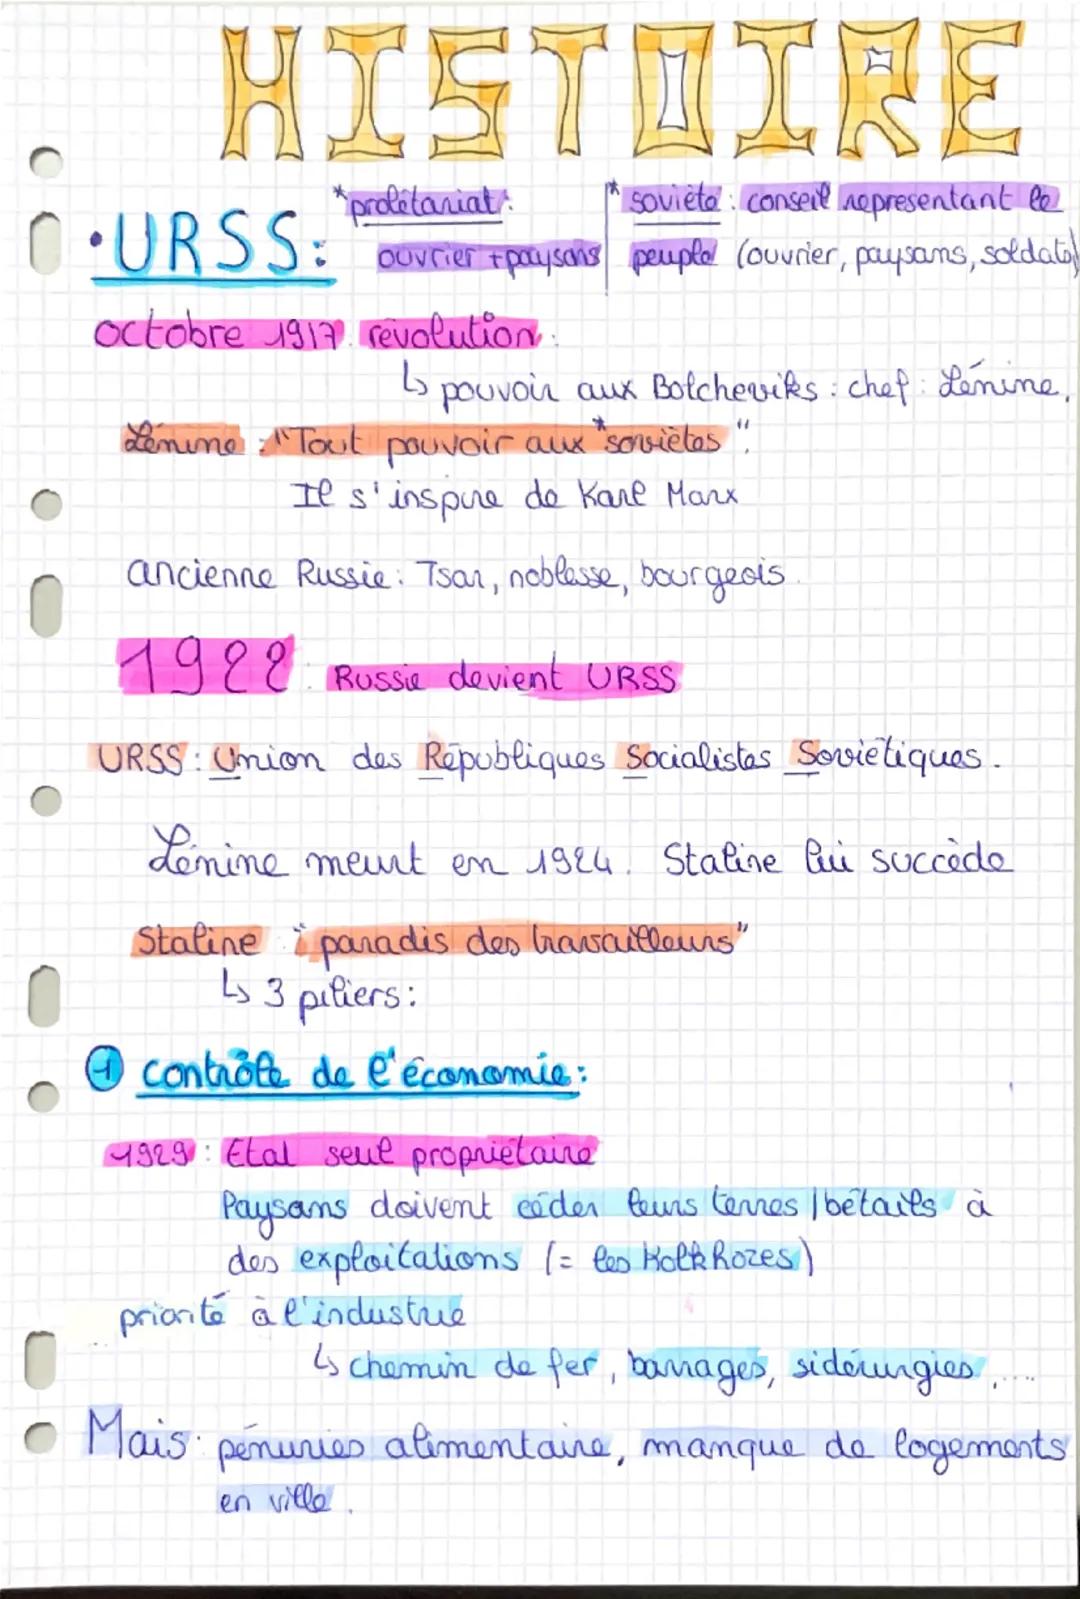 HISTOIRE
*prolétariat :
ouvrier + paysans
*soviète : conseil representant le
peuple (ouvrier, paysans, soldats)
• URSS :
octobre 1917 : révolution :
↳ pouvoir aux Bolcheviks : chef : Lénine,
Lénine : "Tout pouvoir aux *soviètes".
Il s'inspire de Karl Marx
ancienne Russie : Tsar, noblesse, bourgeois.
1922 : Russie devient URSS
URSS : Union des Républiques Socialistes Soviétiques.
Lénine meurt en 1924. Staline lui succède
Staline : "paradis des travailleurs"
↳ 3 piliers :
1 contrôle de l'économie :
1929 : Etat seul propriétaire
Paysans doivent céder leurs terres / bétails à
des exploitations (= les Kolkhozes)
priorité à l'industrie
↳ chemin de fer, barrages, sidérurgies,....
Mais : pénuries alimentaire, manque de logements
en ville.